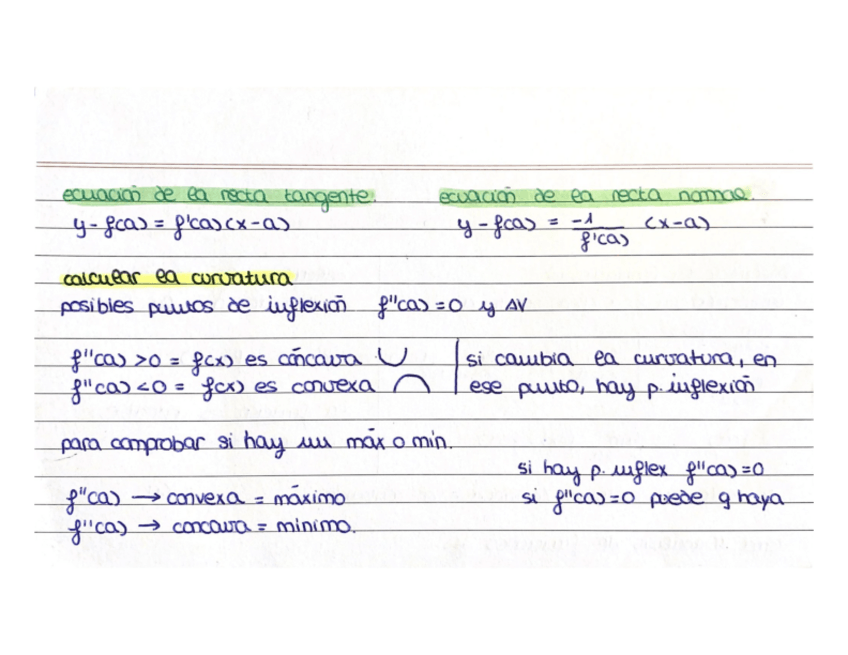 ecuación de la recta tangente.
y - f(a) = f'(a)(x-a)
ecuación de la recta normal.
y - f(a) = -1/f'(a) (x-a)
calcular la curvatura
posibles puntos de inflexión f''(a)=0 y ΔV
f''(a) >0 = f(x) es cóncava ∪
f''(a) <0 = f(x) es convexa ∩
si cambia la curvatura, en
ese punto, hay p. inflexión
para comprobar si hay un máx o mín.
si hay p. inflex f''(a)=0
si f''(a)=0 puede q haya
f''(a) → convexa = máximo
f''(a) → concava = mínimo.